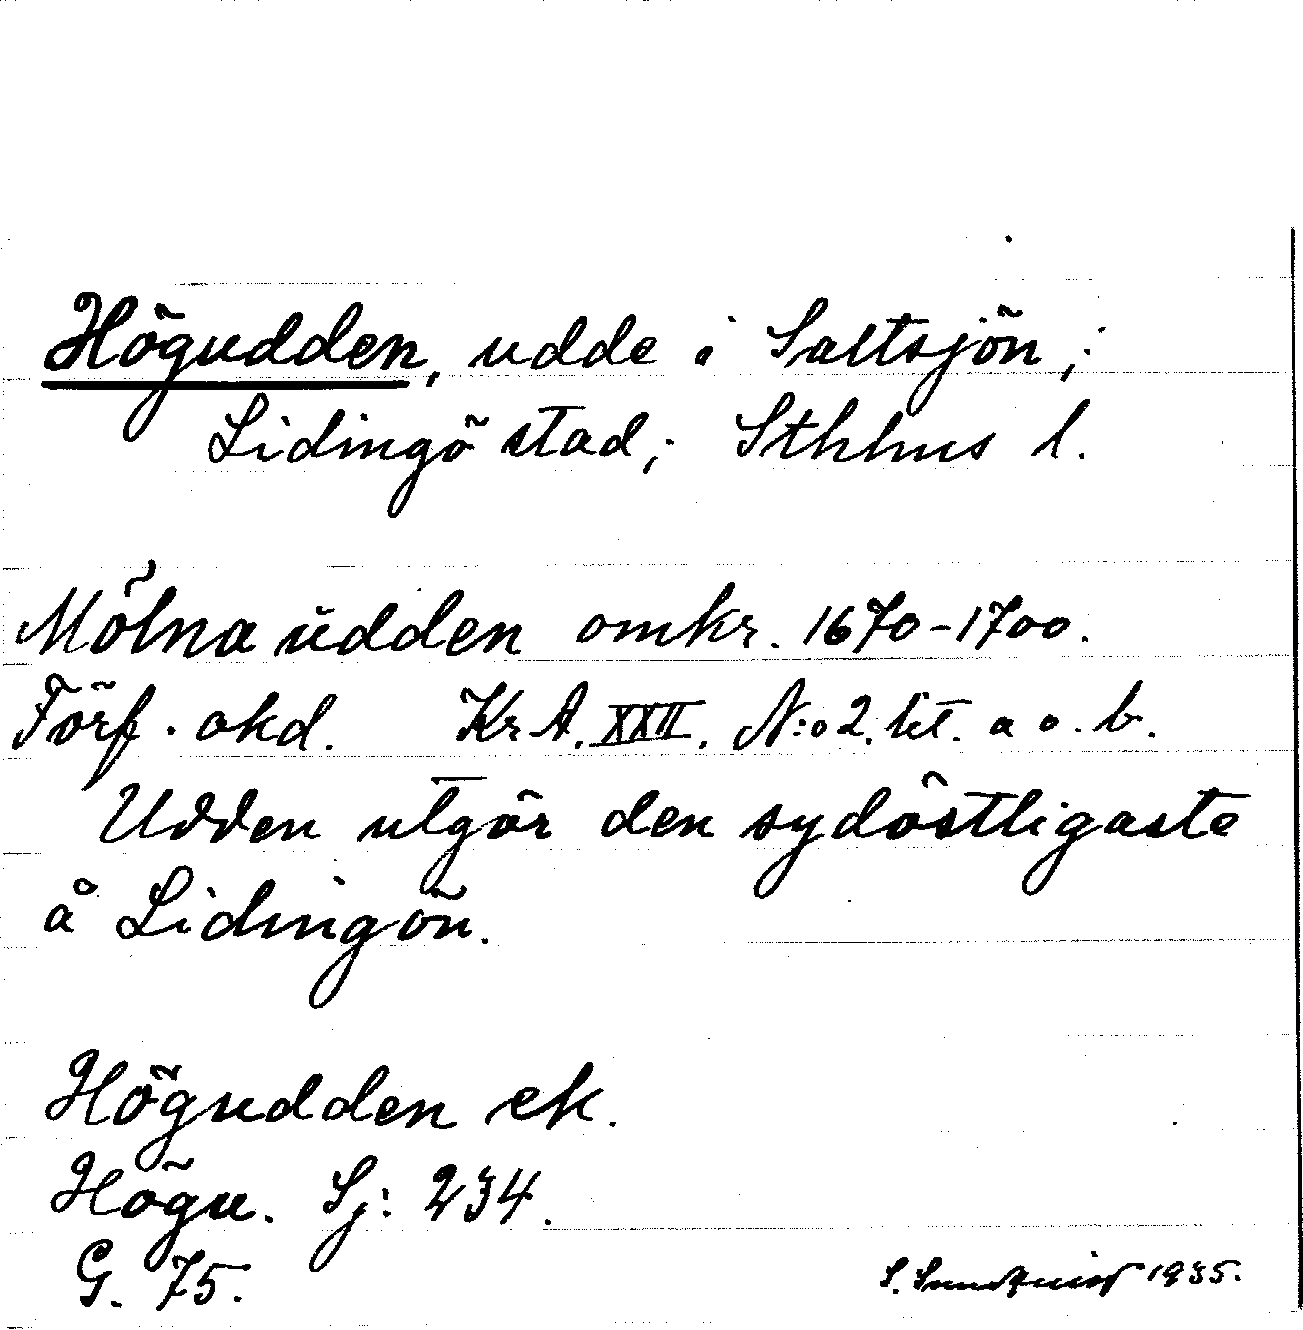 Högudden, udde i Saltsjön,;
Lidingö stad; Sthhus l.
Mölna udden omkr. 1670-1700.
Förf. okd. KrA. XXII. N:o 2. lit. a o. b.
Udden utgör den sydöstligaste
å Lidingön.
Högudden ek.
Högu. Sj: 234.
G. 75.
S. Sundquist 1935.